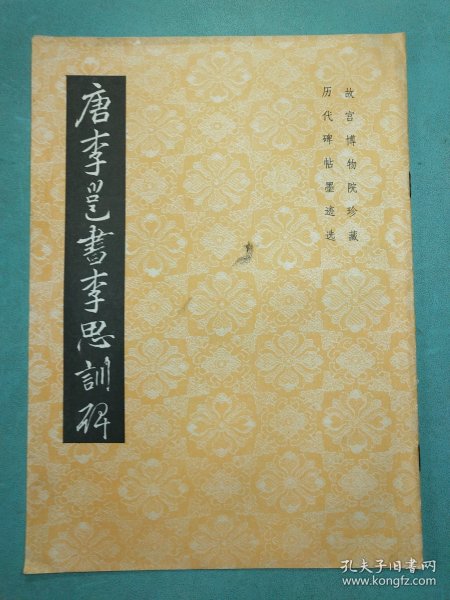 故宫博物院珍藏
历代碑帖墨迹选
唐李邕書李思訓碑
孔夫子旧书网
www.kongfz.com